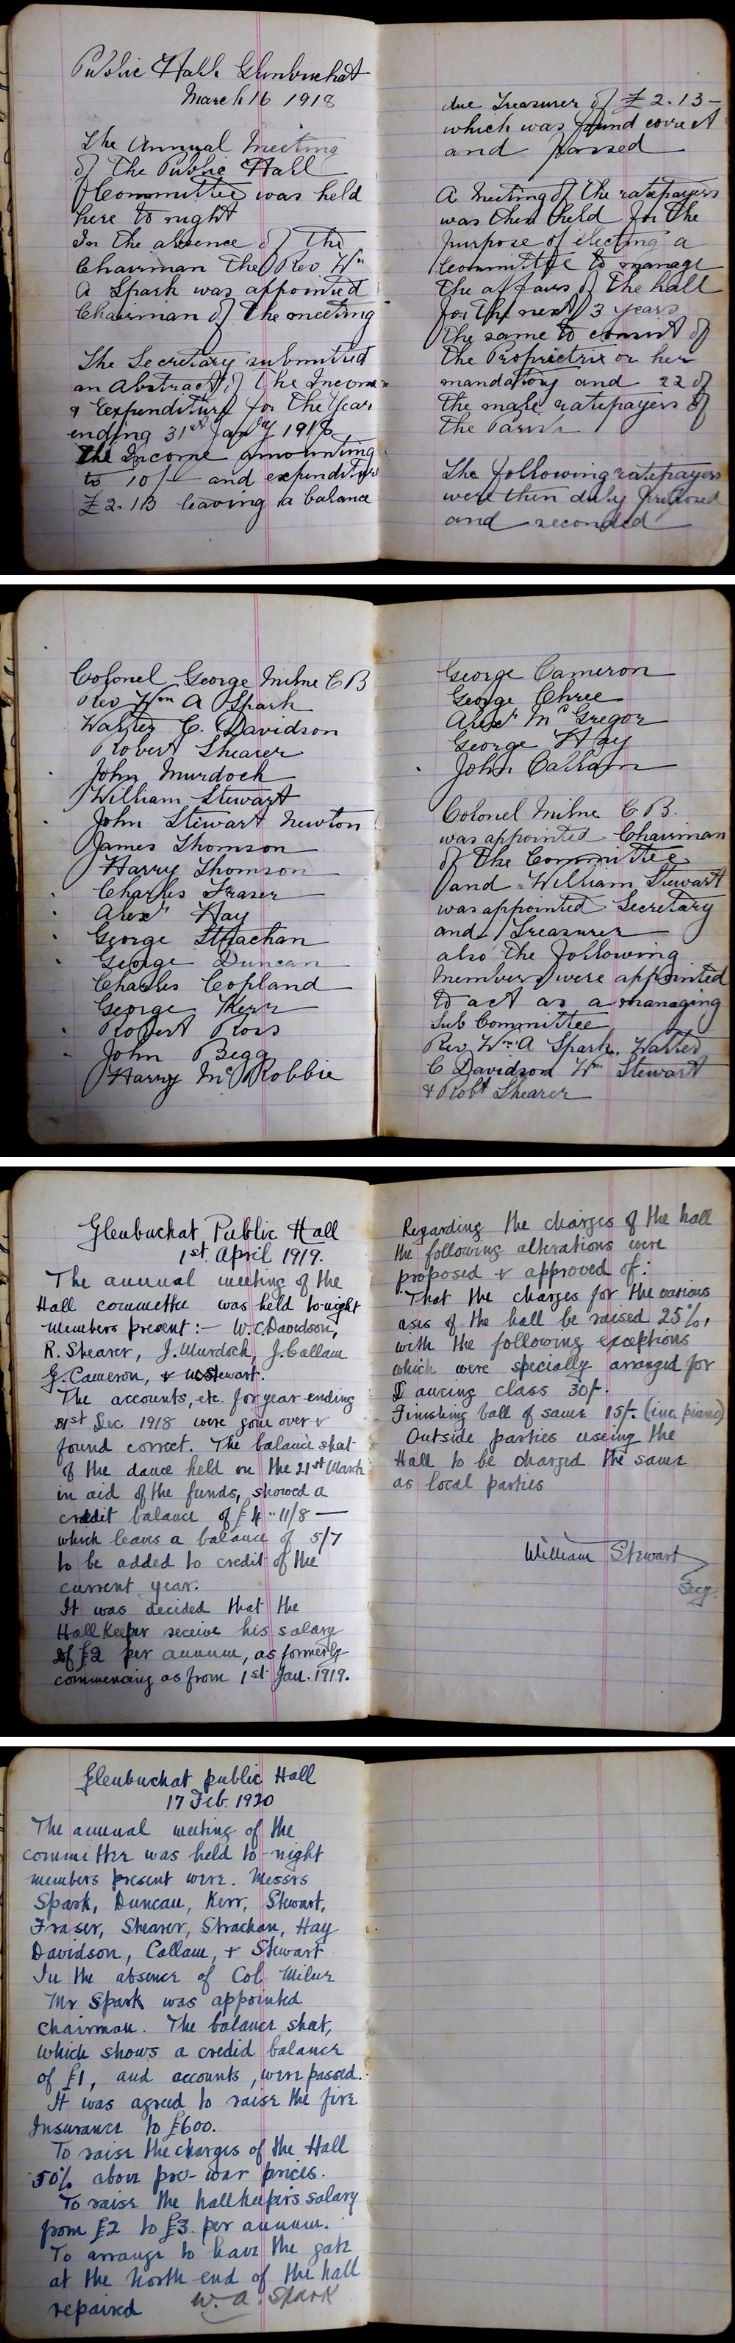 Public Hall Glenbuchat
March 16 1918
The Annual Meeting
of the Public Hall
Committee was held
here to night
In the absence of the
Chairman the Rev Wm
A Spark was appointed
Chairman of the meeting
The Secretary submitted
an Abstract of the Income
& Expenditure for the Year
ending 31st Jany 1918
the Income amounting
to 10/- and expenditure
£2.13 leaving a balance
due Treasurer of £2.13-
which was found correct
and passed
A Meeting of the ratepayers
was then held for the
purpose of electing a
Committee to manage
the affairs of the hall
for the next 3 years
the same to consist of
the Proprietrix or her
mandatory and 22 of
the male ratepayers of
the Parish
The following ratepayers
were then duly proposed
and seconded
Colonel George Milne C B
Rev Wm A Spark
Walter C. Davidson
Robert Shearer
John Murdoch
William Stewart
John Stewart Newton
James Thomson
Harry Thomson
Charles Fraser
Alexr Hay
George Strachan
George Duncan
Charles Copland
George Kerr
Robert Ross
John Begg
Harry McRobbie
George Cameron
George Chree
Alexr McGregor
George Hay
John Callam
Colonel Milne C B.
was appointed Chairman
of the Committee
and William Stewart
was appointed Secretary
and Treasurer
also the following
members were appointed
to act as a managing
Sub Committee
Rev Wm A Spark. Walter
C Davidson Wm Stewart
& Robt Shearer
Glenbuchat Public Hall
1st April 1919.
The annual meeting of the
Hall committee was held to-night
Members present:- W.C. Davidson,
R. Shearer, J. Murdoch, J. Callam
G. Cameron, & W. Stewart.
The accounts, etc. for year ending
31st Dec. 1918 were gone over &
found correct. The balance shat
of the dance held on the 21st March
in aid of the funds, showed a
credit balance of £4-11/8 —
which leaves a balance of 5/7
to be added to credit of the
current year.
It was decided that the
Hall Keeper receive his salary
of £2 per annum, as formerly
commencing as from 1st Jan. 1919.
Regarding the charges of the hall
the following alterations were
proposed & approved of:
That the charges for the various
uses of the hall be raised 25%,
with the following exceptions
which were specially arranged for
Dancing class 30/-
Finishing ball of same 15/- (inc. piano)
Outside parties useing the
Hall to be charged the same
as local parties
William Stewart
Secy.
Glenbuchat public Hall
17 Feb. 1920
The annual meeting of the
committee was held to-night
members present were. Messrs
Spark, Duncan, Kerr, Stewart,
Fraser, Shearer, Strachan, Hay
Davidson, Callam, & Stewart
In the absence of Col. Milne
Mr Spark was appointed
Chairman. The balance shat,
which shows a credid balance
of £1, and accounts, were passed.
It was agreed to raise the fire
Insurance to £600.
To raise the charges of the Hall
50% above pre-war prices.
To raise the hallkeeper's salary
from £2 to £3 per annum.
To arrange to have the gate
at the North end of the hall
repaired W. A. Spark